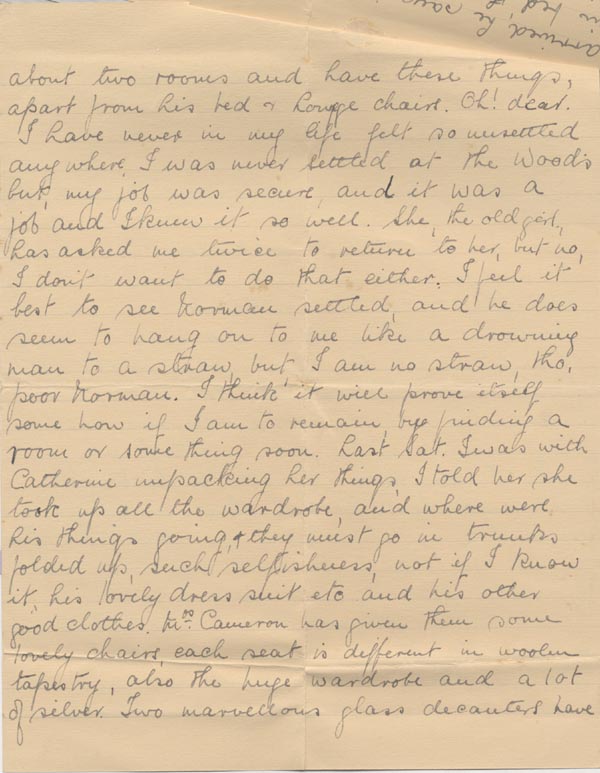 about two rooms and have these things,
apart from his bed & lounge chairs. Oh! dear.
I have never in my life felt so unsettled
any where, I was never settled at the Woods
but, my job was secure, and it was a
job and I knew it so well. She, the old girl,
has asked me twice to return to her, but no,
I don't want to do that either. I feel it
best to see Norman settled, and he does
seem to hang on to me like a drowning
man to a straw, but, I am no straw, tho,
poor Norman. I think it will prove itself
some how if I am to remain, by finding a
room or some thing soon. Last Sat. I was with
Catherine unpacking her things, I told her she
took up all the wardrobe, and where were
his things going, & they must go in trunks
folded up, such selfishness, not if I know
it, his lovely dress suit etc and his other
good clothes. Mrs. Cameron has given them some
lovely chairs, each seat is different in woolen
tapestry, also the huge wardrobe and a lot
of silver. Two marvellous glass decanters have